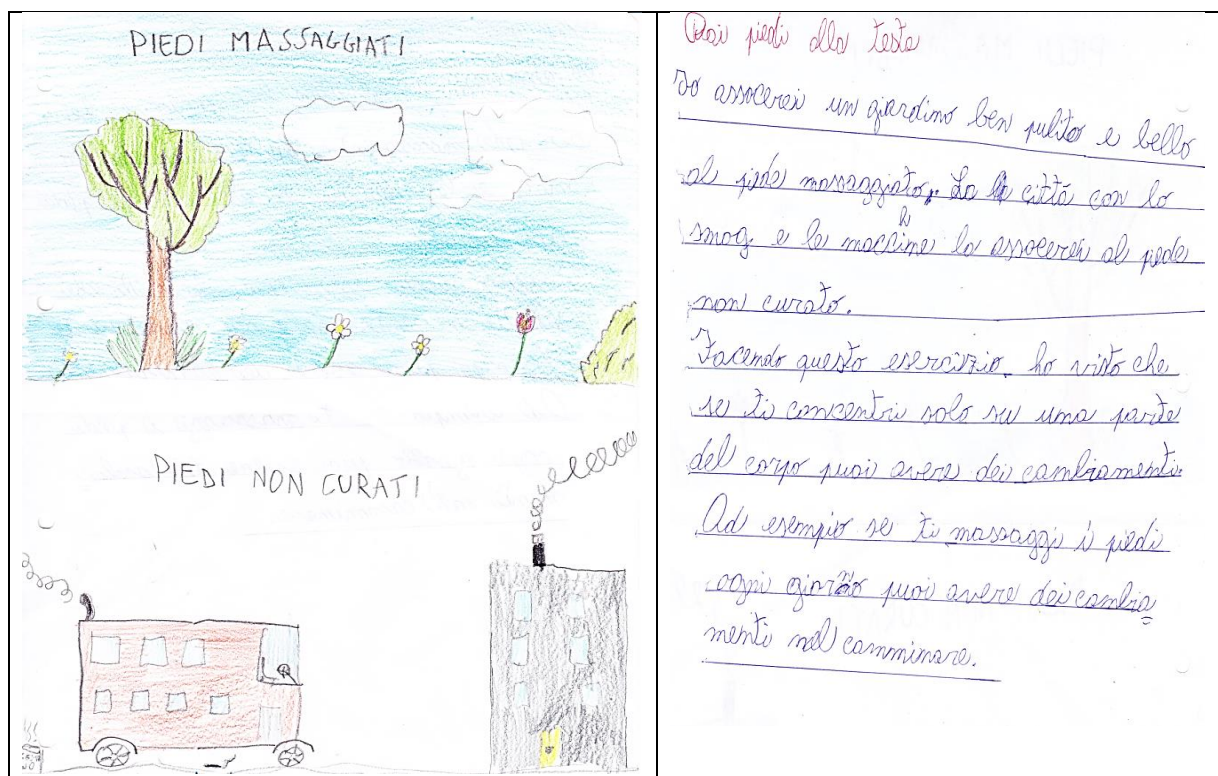 PIEDI MASSAGGIATI
PIEDI NON CURATI
Dai piedi alla testa
Io assocerei un giardino ben pulito e bello
al piede massaggiato. La città con lo
smog e le macchine la assocerei al piede
non curato.
Facendo questo esercizio ho visto che
se ti concentri solo su una parte
del corpo puoi avere dei cambiamenti.
Ad esempio se ti massaggi i piedi
ogni giorno puoi avere dei cambia
menti nel camminare.